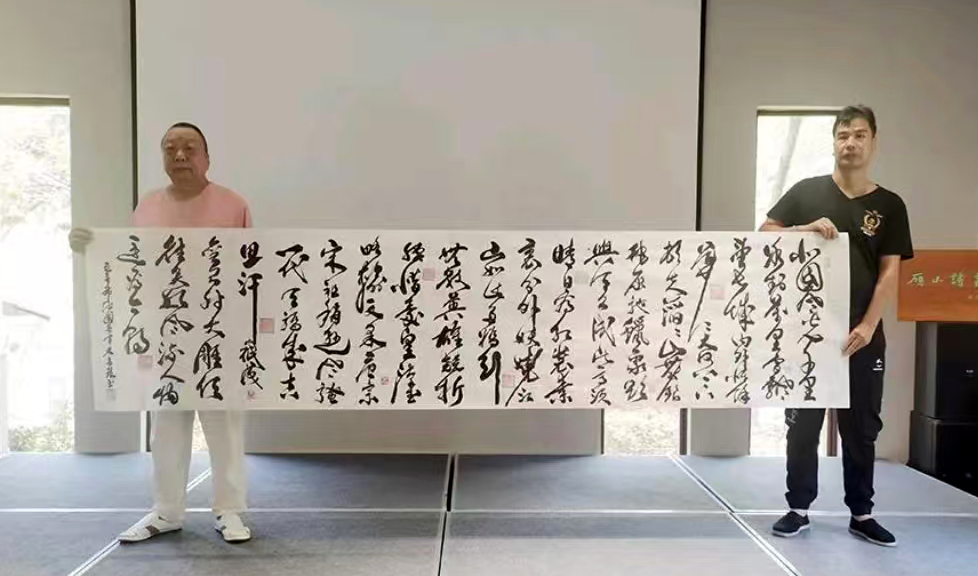 北国风光千里
冰封万里雪飘
望长城内外惟
大河上下
顿失滔滔山舞银
蛇原驰蜡象欲
与天公试比高须
晴日看红装素
裹分外妖娆江
山如此多娇引
无数英雄竞折
腰惜秦皇汉武
略输文采唐宗
宋祖稍逊风骚
一代天骄成吉
思汗
弯弓射大雕俱
往矣数风流人物
还看今朝
雁山诗